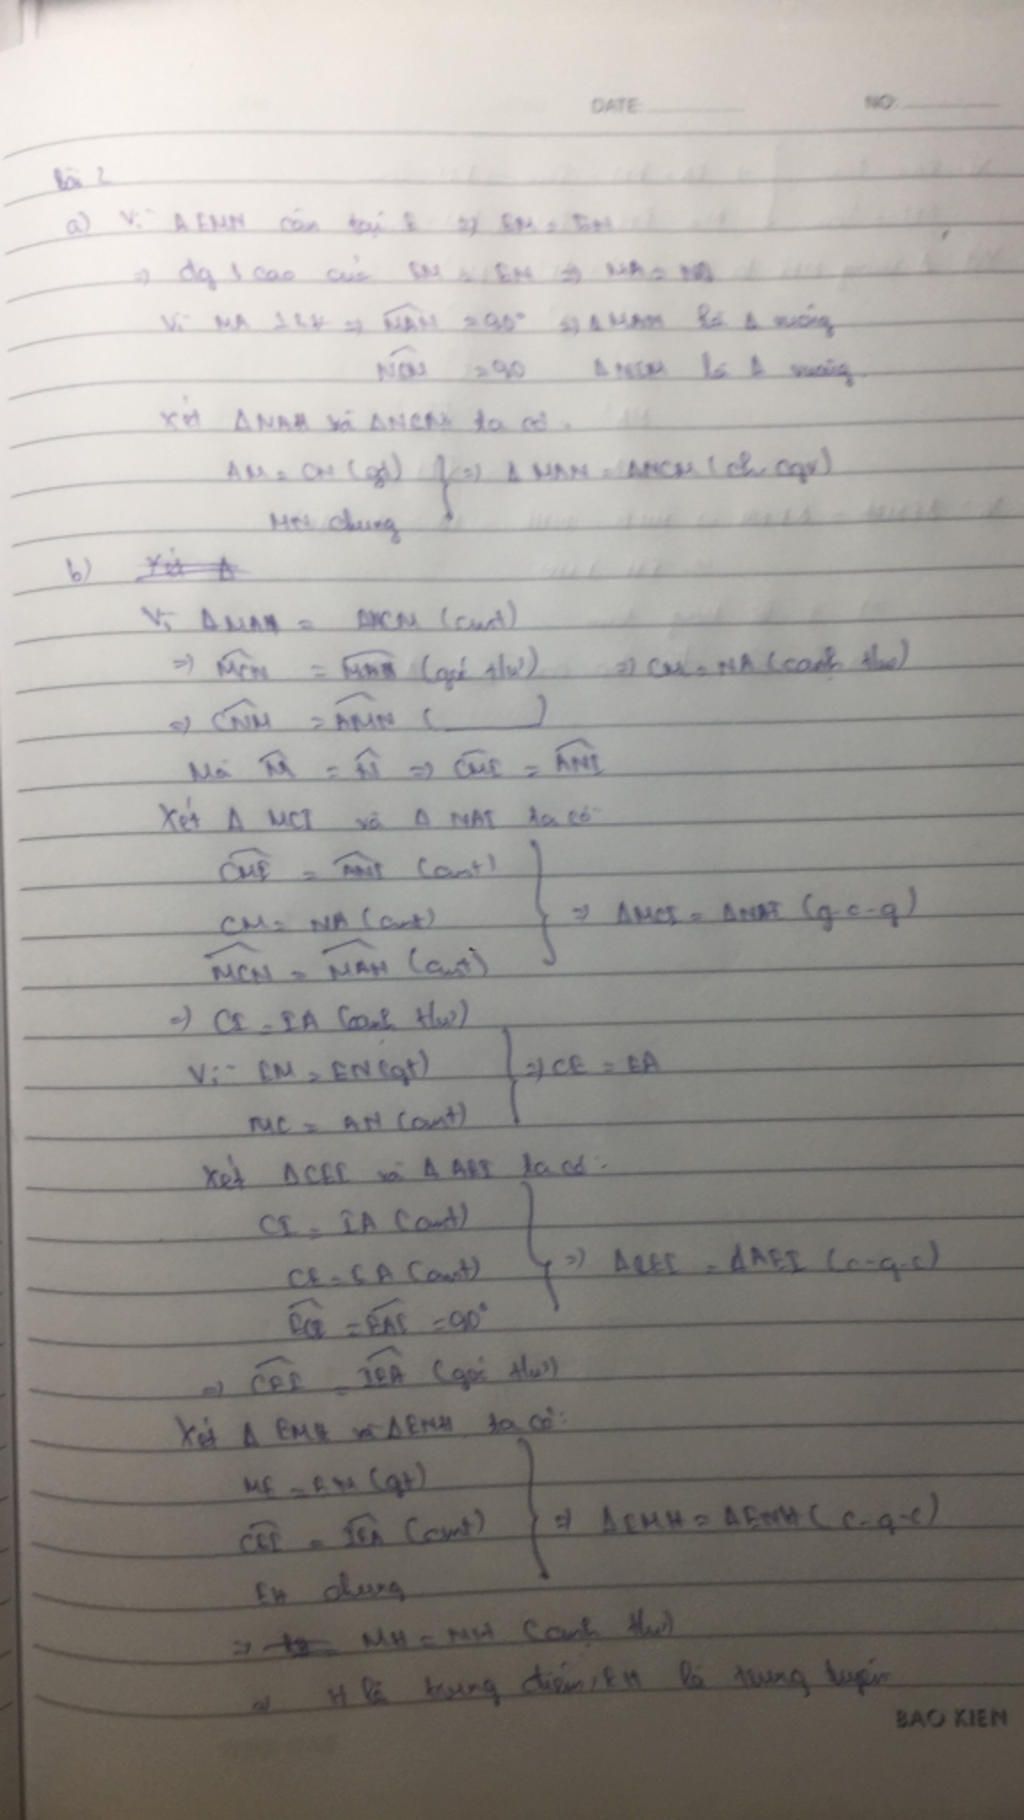 DATE: NO:
Bài 2
a) Vì Δ EMN cân tại E => EM = EN
=> đg cao của EM = EN =>
Vì MA => = 90° => Δ MAN là Δ vuông
= 90 Δ NCM là Δ vuông
Xét Δ NAM và Δ NCM ta có:
AM = CN (gt) } => Δ MAN = Δ NCM (ch. cgv)
MN chung
b) Xét Δ
Vì Δ MAN = Δ NCM (cmt)
=> MCN = MAN (góc t/ư) => CM = NA (cạnh t/ư)
=> CNM = AMN ( )
Mà M = N => CMI = ANI
Xét Δ MCI và Δ NAI ta có:
CMI = ANI (cmt)
CM = NA (cmt) } => Δ MCI = Δ NAI (g-c-g)
MCN = MAN (cmt)
=> CI = IA (cạnh t/ư)
Vì: EM = EN (gt) } => CE = EA
MC = AN (cmt)
Xét Δ CEI và Δ AEI ta có:
CI = IA (cmt)
CE = EA (cmt) } => Δ CEI = Δ AEI (c-g-c)
ECI = EAI = 90°
=> CEI = IEA (góc t/ư)
Xét Δ EMH và Δ ENH ta có:
ME = EN (gt)
CEI = IEA (cmt) } => Δ EMH = Δ ENH (c-g-c)
EH chung
=> MH = NH (cạnh t/ư)
=> H là trung điểm, EH là trung tuyến
BAO KIEN